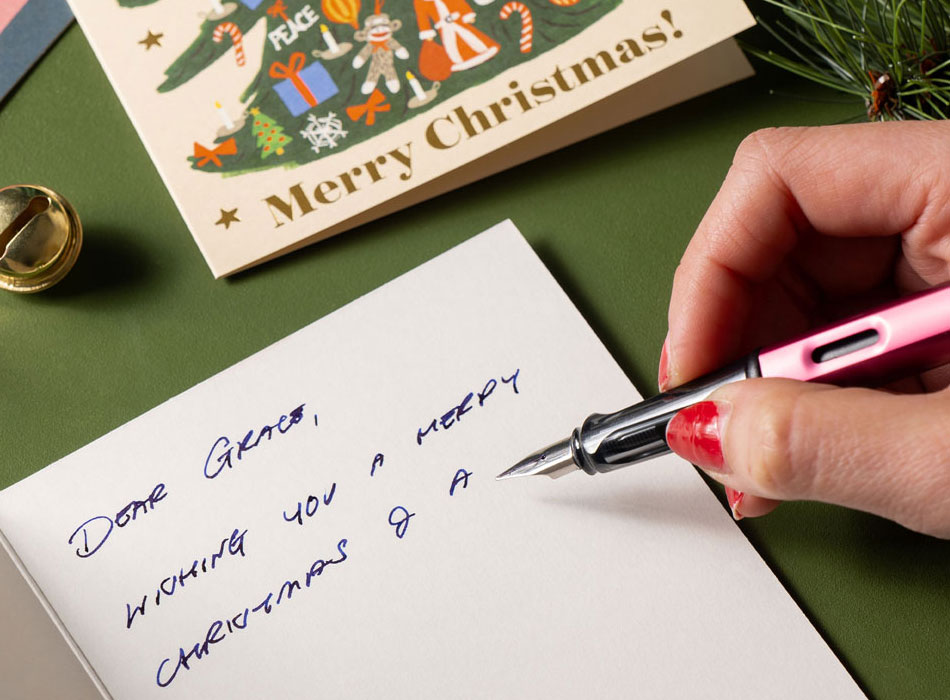 PEACE
Merry Christmas!
DEAR GRACE,
WISHING YOU A MERRY
CHRISTMAS & A